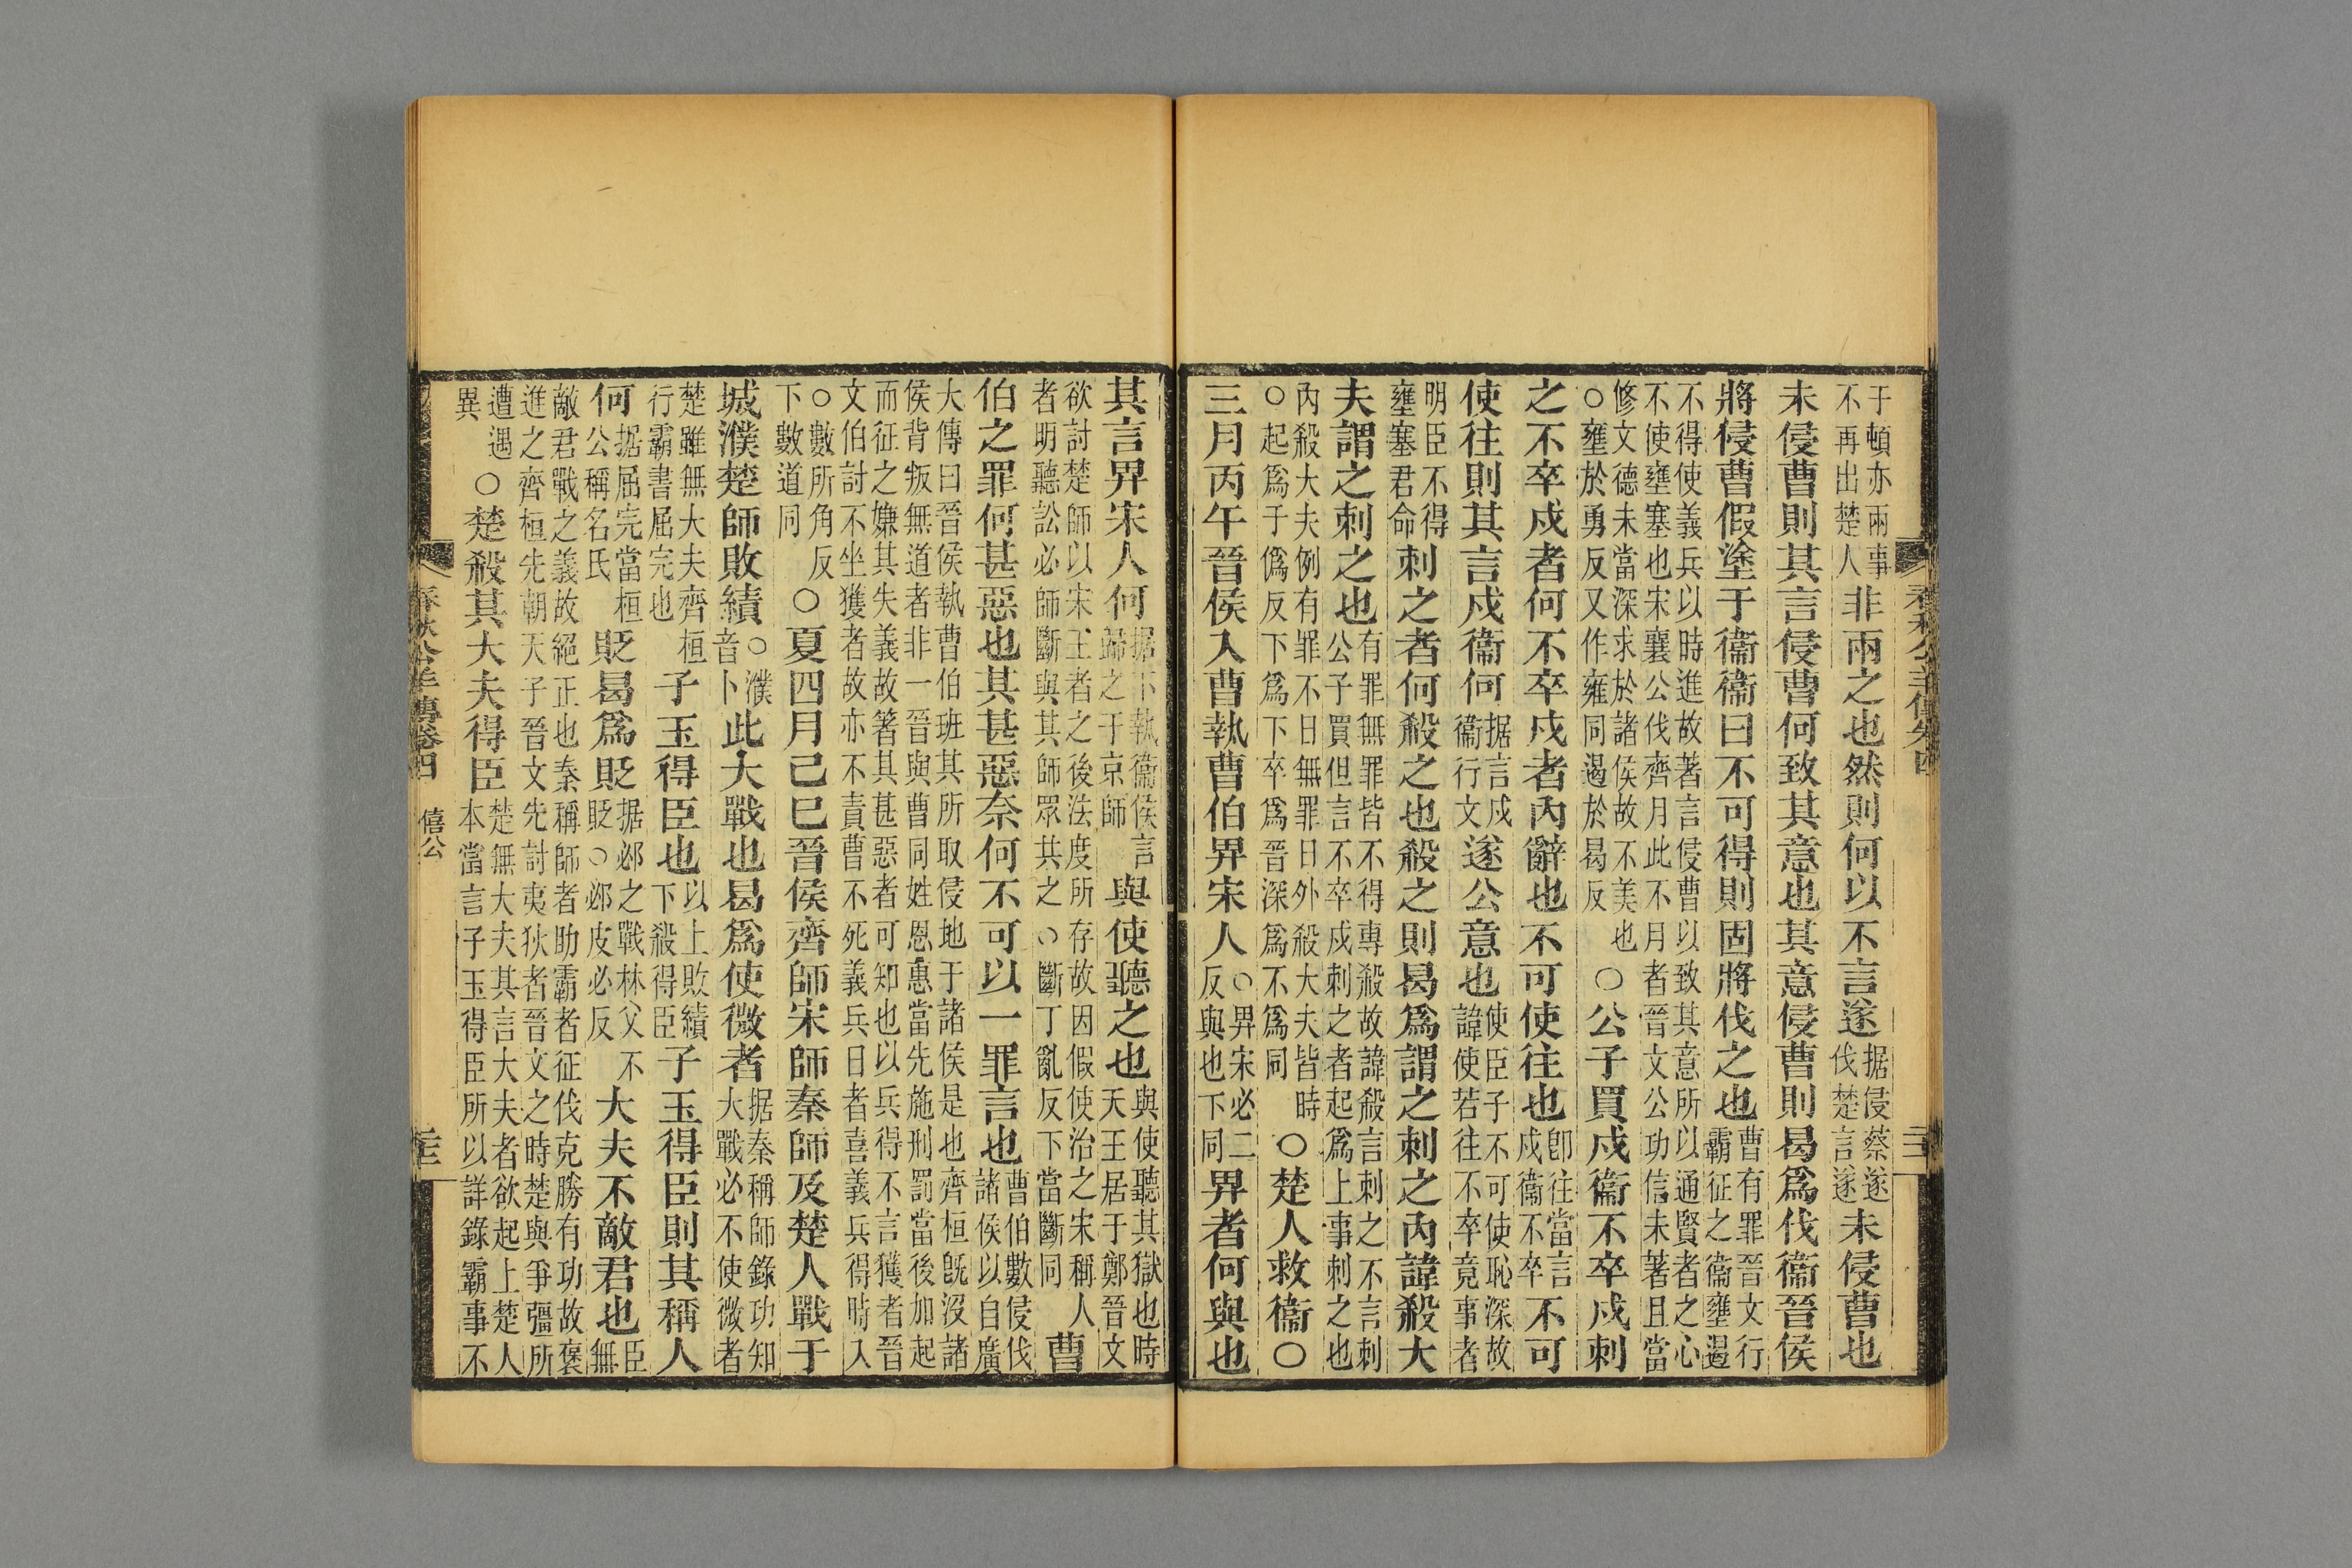 于頓亦兩事不再出楚人非兩之也然則何以不言遂据侵蔡遂伐楚言遂未侵曹也
未侵曹則其言侵曹何致其意也其意侵曹則曷爲伐衞晉侯
將侵曹假塗于衞衞曰不可得則固將伐之也曹有罪晉文行霸征之衞壅遏
不得使義兵以時進故著言侵曹以致其意所以通賢者之心不使壅塞也宋襄公伐齊月此不月者晉文公功信未著且當
修文德未當深求於諸侯故不美也○壅於勇反又作雍同遏於曷反○公子買戍衞不卒戍刺
之不卒戍者何不卒戍者內辭也不可使往也卽往當言戍衞不卒不可
使往則其言戍衞何据言戍衞行文遂公意也使臣子不可使恥深故諱使若往不卒竟事者
明臣不得壅塞君命刺之者何殺之也殺之則曷爲謂之刺之內諱殺大
夫謂之刺之也有罪無罪皆不得專殺故諱殺言刺之不言刺公子買但言不卒戍刺之者起爲上事刺之也
內殺大夫例有罪不日無罪日外殺大夫皆時○起爲于僞反下爲下卒爲晉深爲不爲同○楚人救衞○
三月丙午晉侯入曹執曹伯畀宋人○畀宋必二反與也下同畀者何與也
其言畀宋人何据下執衞侯言歸之于京師與使聽之也與使聽其獄也時天王居于鄭晉文
欲討楚師以宋王者之後法度所存故因假使治之宋稱人者明聽訟必師斷與其師眾共之○斷丁亂反下當斷同曹
伯之罪何甚惡也其甚惡奈何不可以一罪言也曹伯數侵伐諸侯以自廣
大傳曰晉侯執曹伯班其所取侵地于諸侯是也齊桓既沒諸侯背叛無道者非一晉與曹同姓恩惠當先施刑罰當後加起
而征之嫌其失義故著其甚惡者可知也以兵得不言獲者晉文伯討不坐獲者故亦不責曹不死義兵日者喜義兵得時入
○數所角反下數道同○夏四月己巳晉侯齊師宋師秦師及楚人戰于
城濮楚師敗績○濮音卜此大戰也曷爲使微者据秦稱師錄功知大戰必不使微者
楚雖無大夫齊桓行霸書屈完也子玉得臣也以上敗績下殺得臣子玉得臣則其稱人
何据屈完當桓公稱名氏貶曷爲貶据邲之戰林父不貶○邲皮必反大夫不敵君也臣無
敵君戰之義故絕正也秦稱師者助霸者征伐克勝有功故褒進之齊桓先朝天子晉文先討夷狄者晉文之時楚與爭彊所
遭遇異○楚殺其大夫得臣楚無大夫其言大夫者欲起上楚人本當言子玉得臣所以詳錄霸事不
春秋公羊傳卷四
僖公